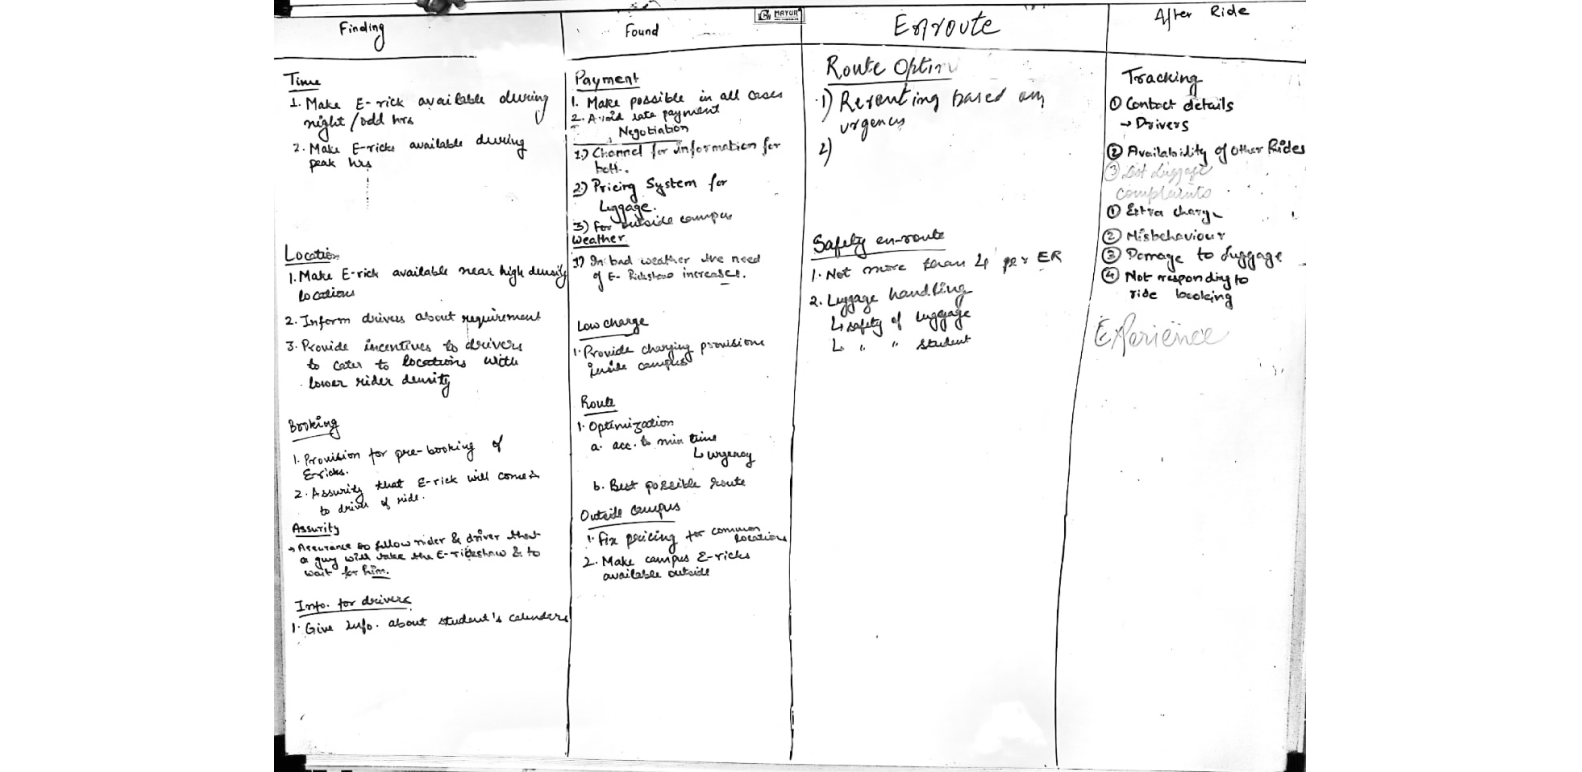 Finding
Time
1. Make E-rick available during
night/odd hrs
2. Make E-ricks available during
peak hrs
Location
1. Make E-rick available near high density
locations
2. Inform drivers about requirement
3. Provide incentives to drivers
to cater to locations with
lower rider density
Booking
1. Provision for pre-booking of
E-ricks.
2. Assurity that E-rick will come
to driver of ride.
Assurity
→ Assurance to fellow rider & driver that
a guy will take the E-rickshaw & to
wait for him.
Info. for drivers
1. Give Info. about student's calenders
Found
MAYUR
Payment
1. Make possible in all cases
2. Avoid late payment
Negotiation
1) Channel for information for
both.
2) Pricing System for
Luggage.
3) For outside campus
Weather
1) In bad weather the need
of E-Rickshaw increases.
Low charge
1. Provide charging provisions
inside campus
Route
1. Optimization
a. acc. to min time
↳ urgency
b. Best possible route
Outside campus
1. Fix pricing for common
locations
2. Make campus E-ricks
available outside
Enroute
Route Optim
1) Rerouting based on
urgency
2)
Safety en-route
1. Not more than 4 per ER
2. Luggage handling
↳ safety of luggage
↳ " " student
After Ride
Tracking
① Contact details
→ Drivers
② Availability of other Rides
③ Lost Luggage
complaints
① Extra charge
② Misbehaviour
③ Damage to Luggage
④ Not responding to
ride booking
Experience